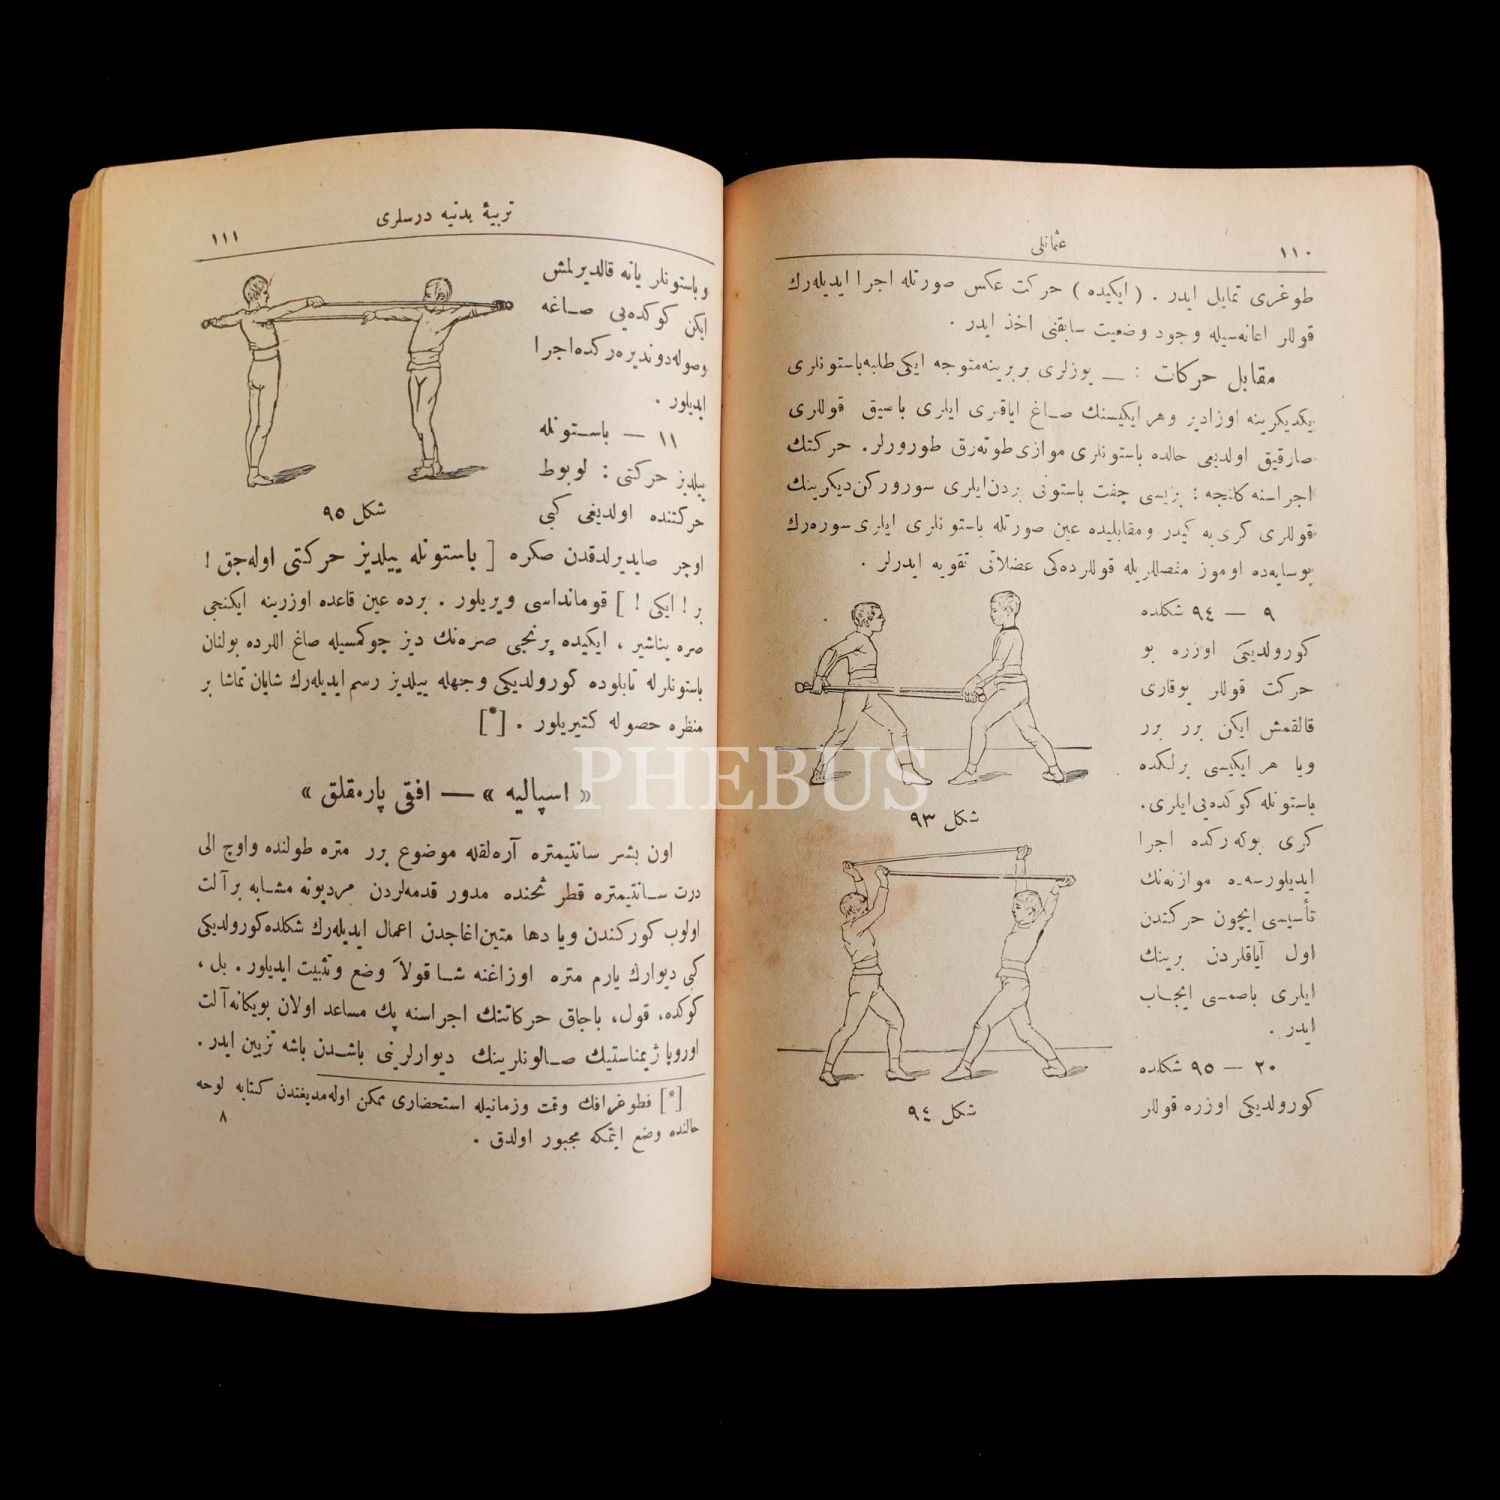 ١١٠
عثمانلى
طوغرى تمايل ايدر . ( ايكيده ) حركت عكس صورتله اجرا ايديله‌رك
قوللر اعانه‌سيله وجود وضعيت سابقنى اخذ ايدر .
مقابل حركات : — يوزلرى بربرينه متوجه ايكى طلبه باستونلرى
يكديكرينه اوزادير وهر ايكيسنك صاغ اياقلرى ايلرى باصيق قوللرى
صارقيق اولديغى حالده باستونلرى موازى طوته‌رق طورورلر. حركتك
اجراسنه كلنجه : بريسى چفت باستونى بردن ايلرى سوروركن ديكرينك
قوللرى كرى‌يه كيدر ومقابليده عين صورتله باستونلرى ايلرى سوره‌رك
بوسايه‌ده اوموز مفصللريله قوللرده‌كى عضلاتى تقويه ايدرلر .
٩ — ٩٤ شكلده
كورولديكى اوزره بو
حركت قوللر يوقارى
قالقمش ايكن برر برر
ويا هر ايكيسى برلكده
باستونله كوكده‌يى ايلرى.
كرى بوكه‌ركده اجرا
ايديلورسه‌ده موازنه‌نك
تأسيسى ايچون حركتدن
اول آياقلردن برينك
ايلرى باصمسى ايجاب
ايدر .
٢٠ — ٩٥ شكلده
كورولديكى اوزره قوللر
شكل ٩٣
شكل ٩٤
تربيۀ بدنيه درسلرى
١١١
وباستونلر يانه قالديرلمش
ايكن كوكده‌يى صاغه
وصوله دونديره‌ركده اجرا
ايديلور .
١١ — باستونله
ييلديز حركتى : لوبوط
حركتنده اولديغى كبى
شكل ٩٥
اوچر صايديرلدقدن صكره [ باستونله ييلديز حركتى اوله‌جق !
بر ! ايكى ! ] قومانداسى ويريلور . برده عين قاعده اوزرينه ايكنجى
صره يناشير ، ايكيده برنجى صره‌نك ديز چوكمسيله صاغ اللرده بولنان
باستونلرله تابلوده كورولديكى وجهله ييلديز رسم ايديله‌رك شايان تماشا بر
منظره حصوله كتيريلور . [*]
« اسپاليه » — افقى پارمقلق »
اون بشر سانتيمتره آره‌لقله موضوع برر متره طولنده واوچ الى
درت سانتيمتره قطر ثخننده مدور قدمه‌لردن مرديونه مشابه بر آلت
اولوب كوركندن ويا دها متين اغاجدن اعمال ايديله‌رك شكلده كورولديكى
كبى ديوارك يارم متره اوزاغنه شاقولاً وضع وتثبيت ايديلور . بل ،
كوكده، قول، باجاق حركاتنك اجراسنه پك مساعد اولان بويكانه آلت
اوروپا ژيمناستيك صالونلرينك ديوارلرينى باشدن باشه تزيين ايدر .
[*] فطوغرافك وقت وزمانيله استحضارى ممكن اوله‌مديغندن كتابه لوحه
حالنده وضع ايتمكه مجبور اولدق .
٨
PHEBUS